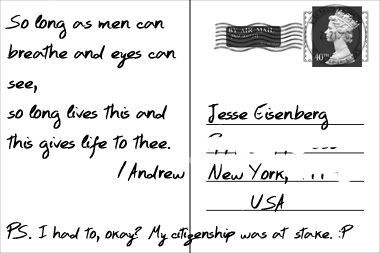 So long as men can
breathe and eyes can
see,
so long lives this and
this gives life to thee.
/Andrew
BY AIR MAIL
40TH
Jesse Eisenberg
New York,
USA
PS. I had to, okay? My citizenship was at stake. :P